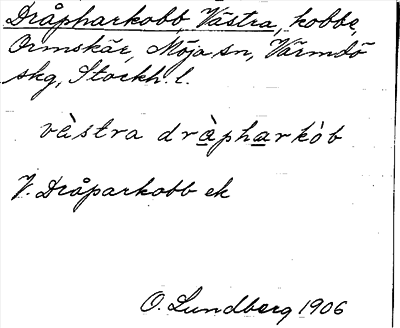 Dråpharkobb, Västra, kobbe,
Ormskär, Möja sn, Värmdö
skg, Stockh. l.
vàstra dràpharkòb
V. Dråparkobb ek
O. Lundberg 1906